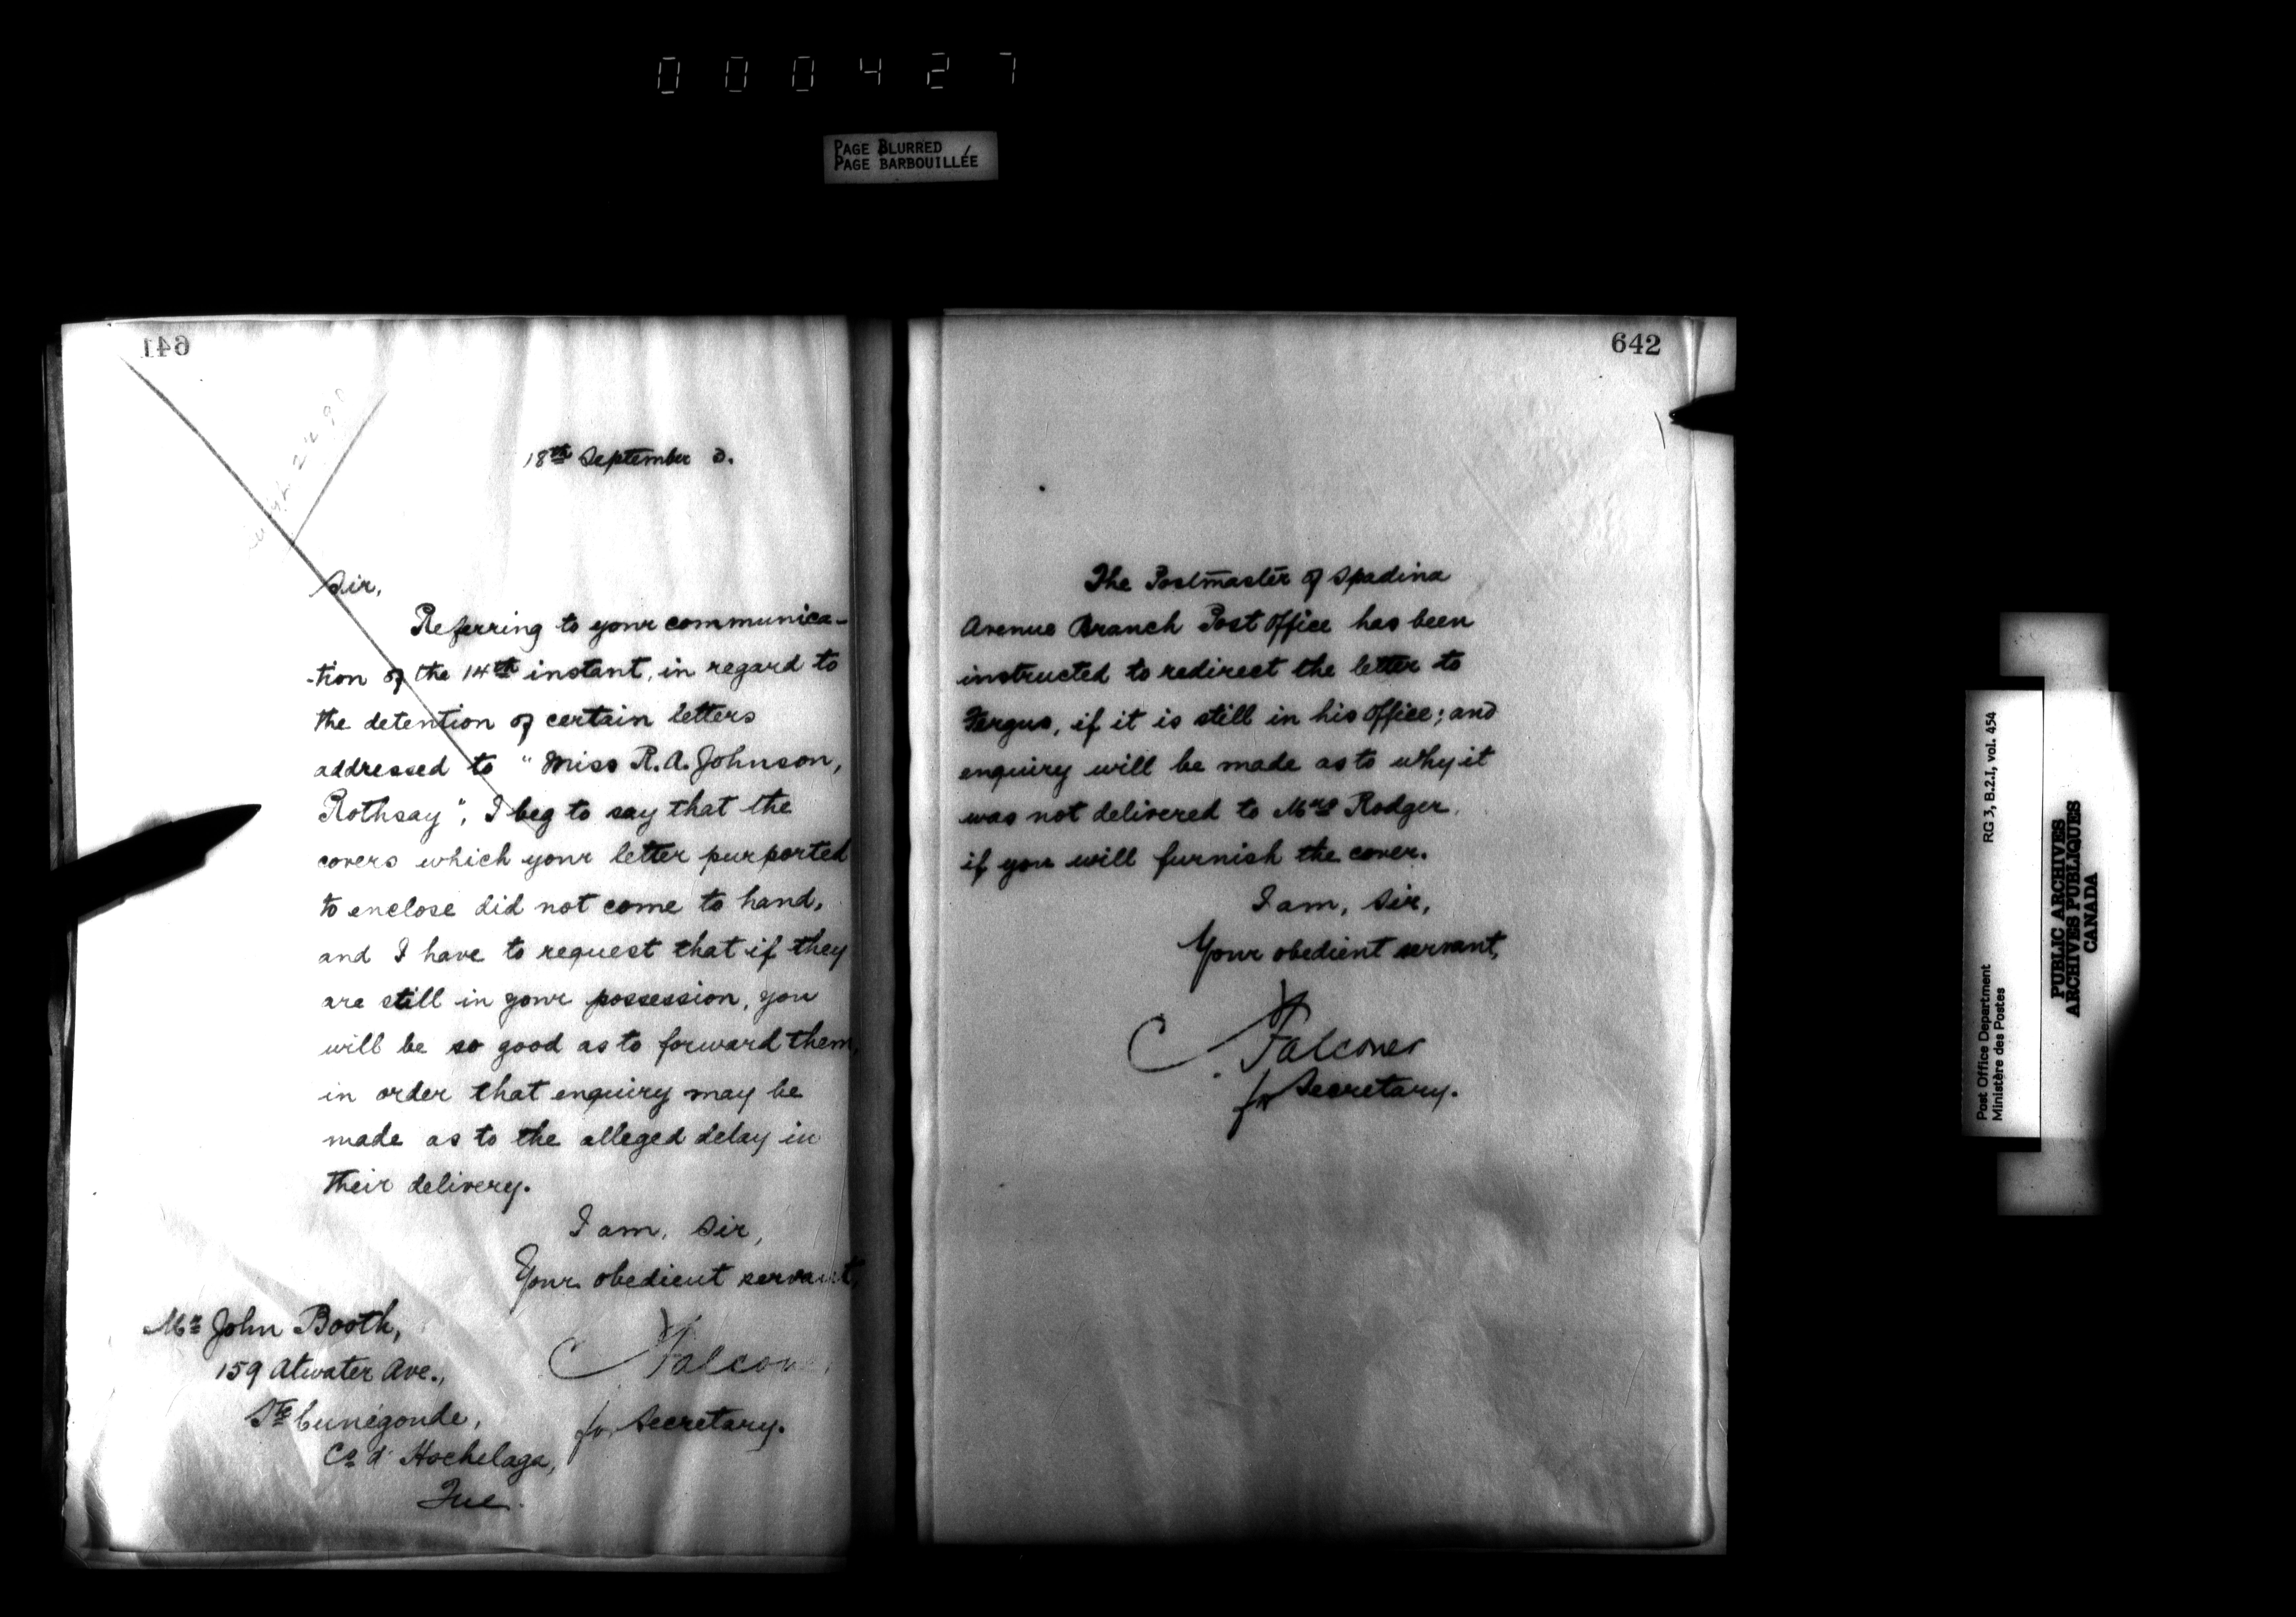 000427
PAGE BLURRED
PAGE BARBOUILLÉE
641
18th September 3.
Sir,
Referring to your communica-
-tion of the 14th instant, in regard to
the detention of certain letters
addressed to "Miss R. A. Johnson,
Rothsay", I beg to say that the
covers which your letter purported
to enclose did not come to hand,
and I have to request that if they
are still in your possession, you
will be so good as to forward them,
in order that enquiry may be
made as to the alleged delay in
their delivery.
I am, Sir,
Your obedient servant,
Falcon
for Secretary.
Mr John Booth,
159 Atwater Ave.,
Ste Cunégonde,
Co d'Hochelaga,
Que.
642
The Postmaster of Spadina
Avenue Branch Post Office has been
instructed to redirect the letter to
Fergus, if it is still in his office; and
enquiry will be made as to why it
was not delivered to Mrs Rodger
if you will furnish the cover.
I am, Sir,
Your obedient servant,
Falconer
for Secretary.
Post Office Department
Ministère des Postes
RG 3, B.2.I, vol. 454
PUBLIC ARCHIVES
ARCHIVES PUBLIQUES
CANADA